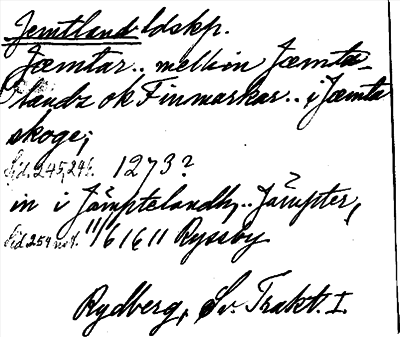 Jemtland ldskp.
Jæmtar.. mellin Jæmta-
landz ok Finmarkar.. i Jæmta
skoge;
Sid. 245, 246. 1273?
in i Jämptelandh,.. Jämpter,
Sid 259 not. 11/6 1611 Ryssby
Rydberg, Sv. Trakt. I.